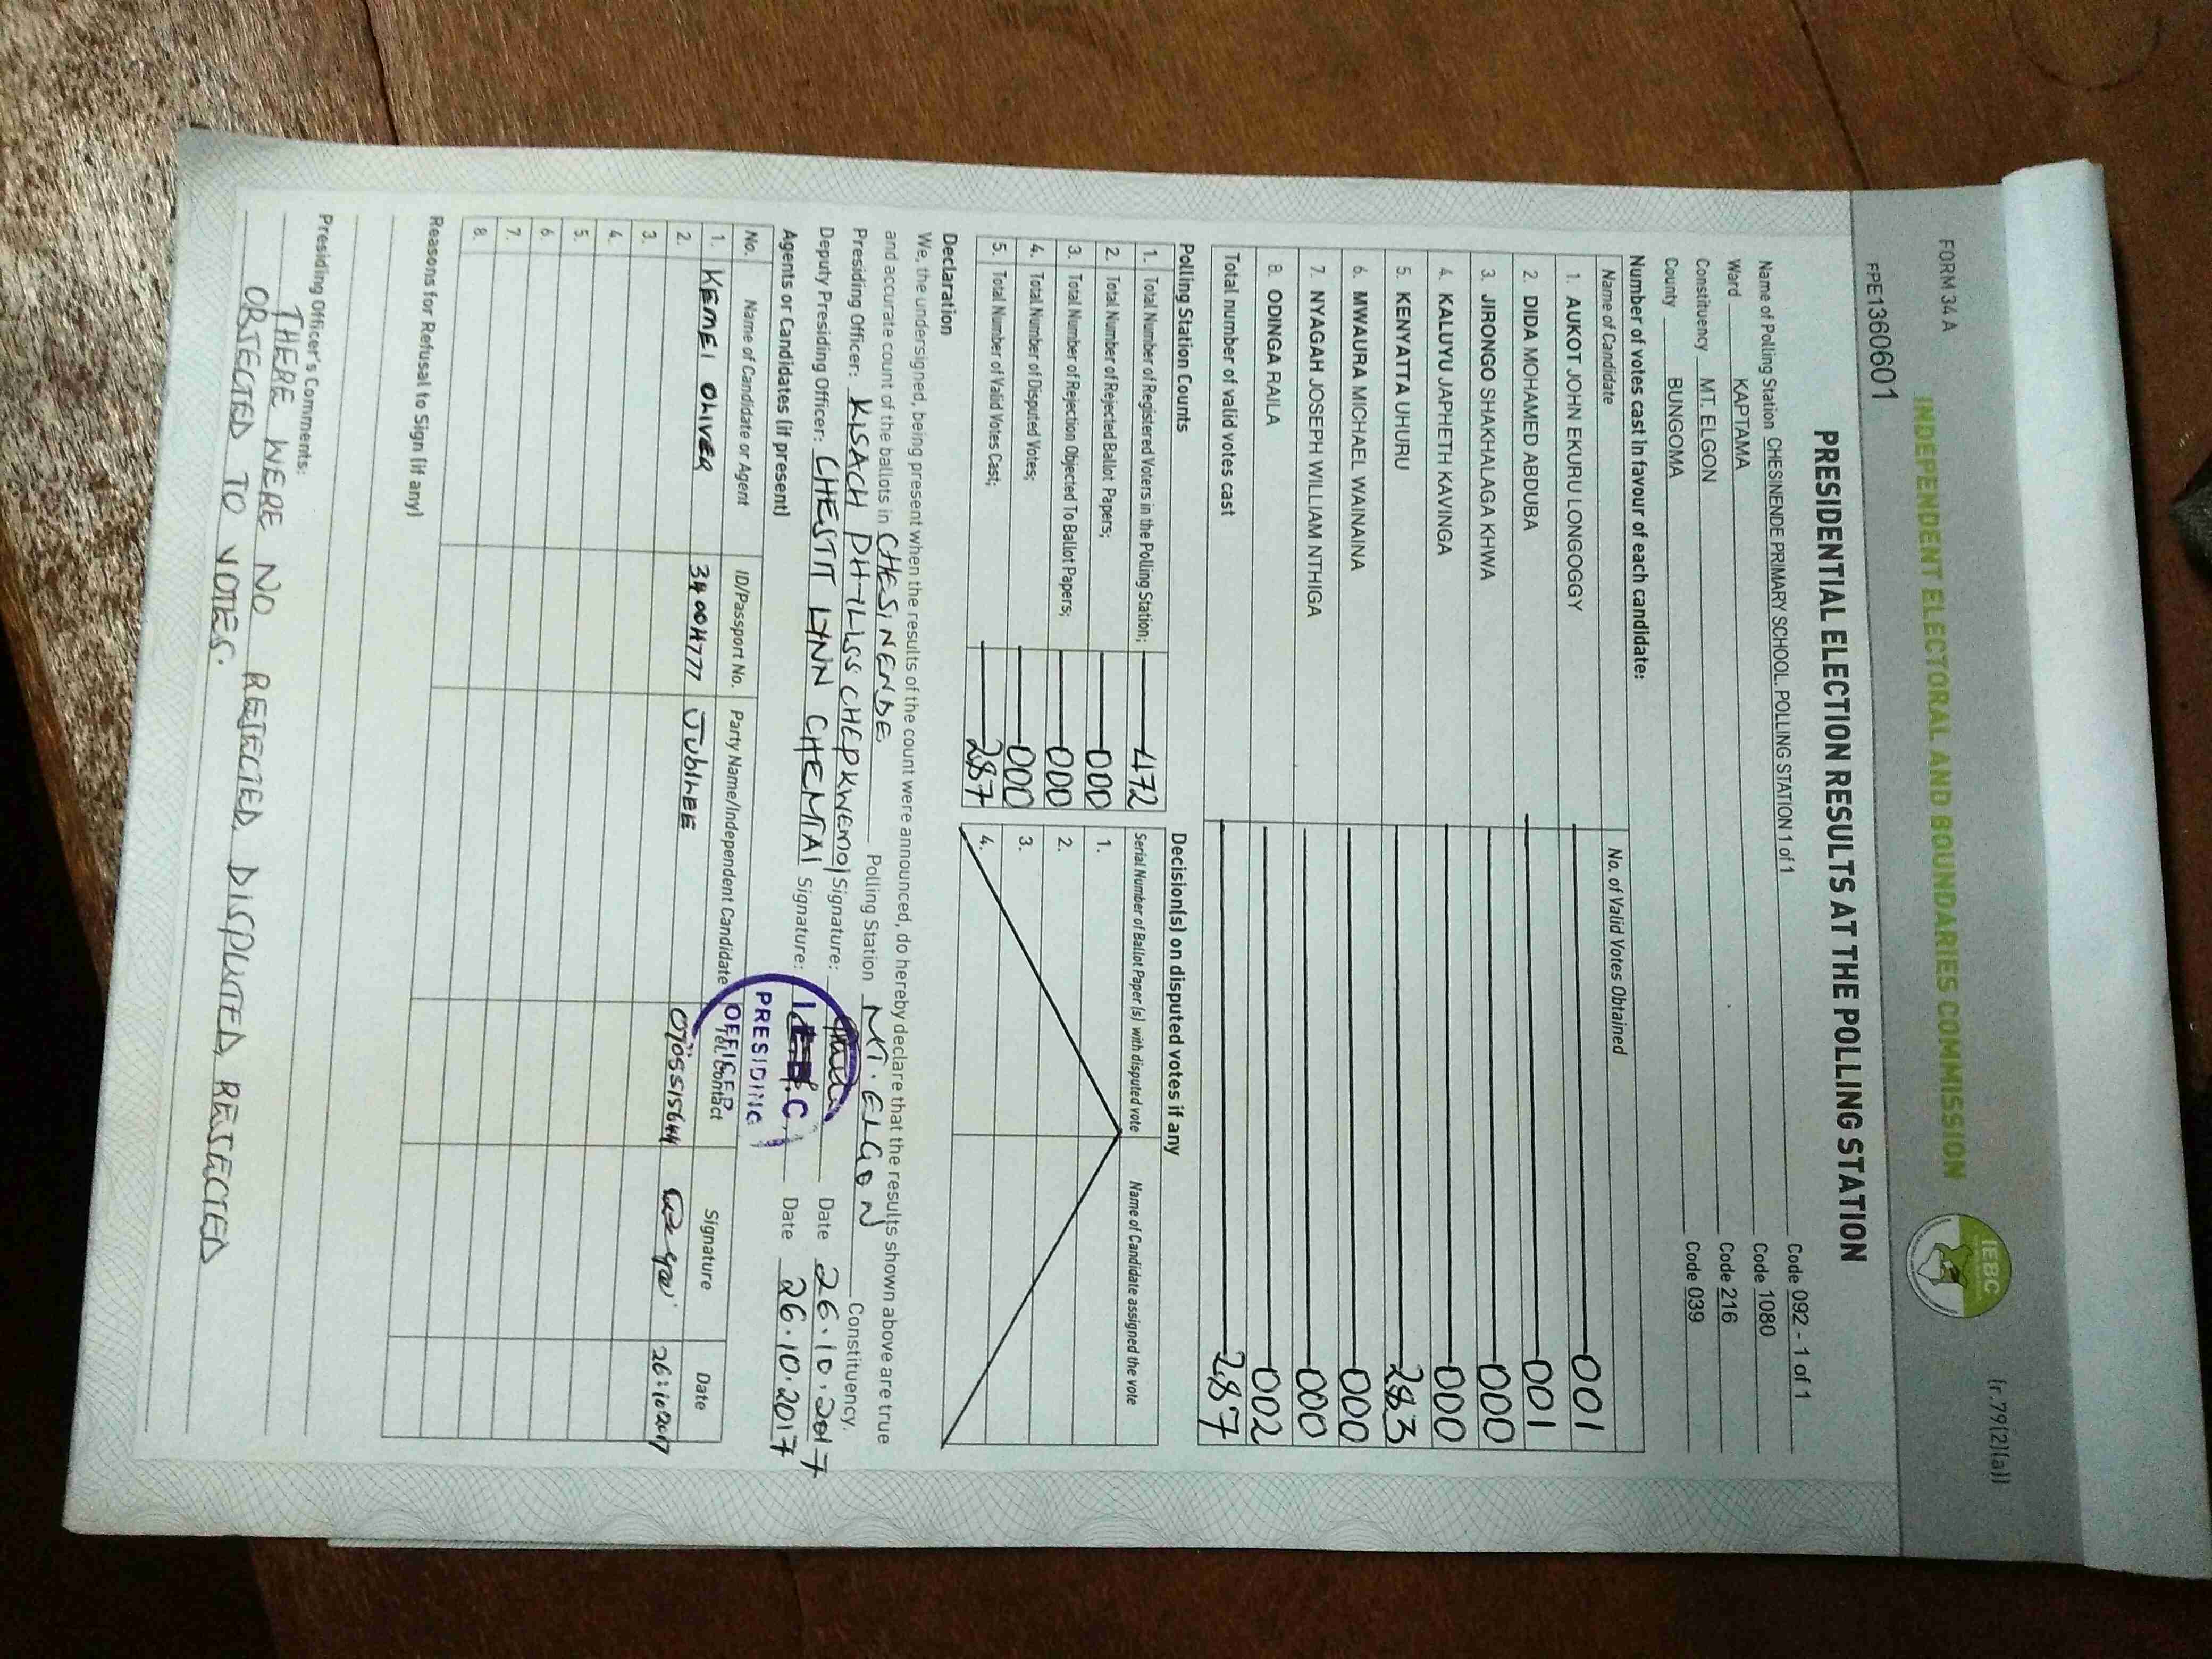 FORM 34 A
(r.79(2)(a))
INDEPENDENT ELECTORAL AND BOUNDARIES COMMISSION
IEBC
FPE1360601
PRESIDENTIAL ELECTION RESULTS AT THE POLLING STATION
Name of Polling Station CHESINENDE PRIMARY SCHOOL. POLLING STATION 1 of 1 Code 092 - 1 of 1
Ward KAPTAMA Code 1080
Constituency MT. ELGON Code 216
County BUNGOMA Code 039
Number of votes cast in favour of each candidate:
Name of Candidate No. of Valid Votes Obtained
1. AUKOT JOHN EKURU LONGOGGY 001
2. DIDA MOHAMED ABDUBA 001
3. JIRONGO SHAKHALAGA KHWA 000
4. KALUYU JAPHETH KAVINGA 000
5. KENYATTA UHURU 283
6. MWAURA MICHAEL WAINAINA 000
7. NYAGAH JOSEPH WILLIAM NTHIGA 000
8. ODINGA RAILA 002
Total number of valid votes cast 287
Polling Station Counts Decision(s) on disputed votes if any
1. Total Number of Registered Voters in the Polling Station; 472 Serial Number of Ballot Paper(s) with disputed vote Name of Candidate assigned the vote
2. Total Number of Rejected Ballot Papers; 000 1.
3. Total Number of Rejection Objected To Ballot Papers; 000 2.
4. Total Number of Disputed Votes; 000 3.
5. Total Number of Valid Votes Cast; 287 4.
Declaration
We, the undersigned, being present when the results of the count were announced, do hereby declare that the results shown above are true
and accurate count of the ballots in CHESINENDE Polling Station MT. ELGON Constituency.
Presiding Officer: KISACH PHILISS CHEPKWEMOI Signature: Date 26.10.2017
Deputy Presiding Officer: CHESTIT LYNN CHEMTAI Signature: Date 26.10.2017
PRESIDING
OFFICER
Agents or Candidates (if present)
No. Name of Candidate or Agent ID/Passport No. Party Name/Independent Candidate Tel. Contact Signature Date
1. KEMEI OLIVER 34004777 JUBILEE 0705515644 26.10.2017
2.
3.
4.
5.
6.
7.
8.
Reasons for Refusal to Sign (if any)
Presiding Officer's Comments:
THERE WERE NO REJECTED, DISPUTED, REJECTED
OBJECTED TO VOTES.